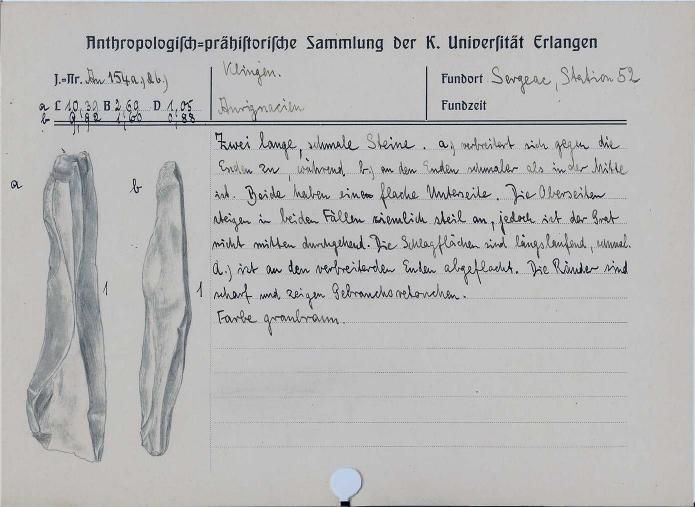 Anthropologisch=prähistorische Sammlung der K. Universität Erlangen
J.=Nr. An 154a,(&b.)
Klingen.
Fundort Sergeac, Station 52
a L 10,30 B 2,60 D 1,05
Aurignacien
Fundzeit
b 9,92 1,60 0,88
Zwei lange, schmale Steine. a.) verbreitert sich gegen die
Enden zu, während b.) an den Enden schmaler als in der Mitte
ist. Beide haben eine flache Unterseite. Die Oberseiten
steigen in beiden Fällen ziemlich steil an, jedoch ist der Grat
nicht mitten durchgehend. Die Schlagflächen sind längslaufend, schmal.
a.) ist an den verbreiterden Enden abgeflacht. Die Ränder sind
scharf und zeigen Gebrauchsretouchen.
Farbe graubraun.
a
b
1
1